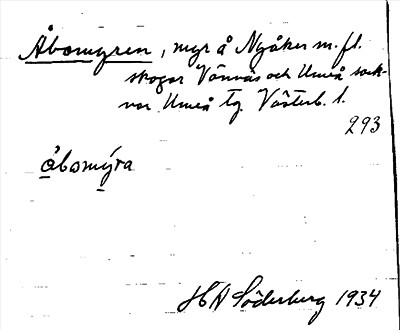 Åbomyren, myr å Nyåker m. fl.
skogar Vännäs och Umeå sock-
nar Umeå tg. Västerb. l.
293
åbomýra
H A Söderberg 1934